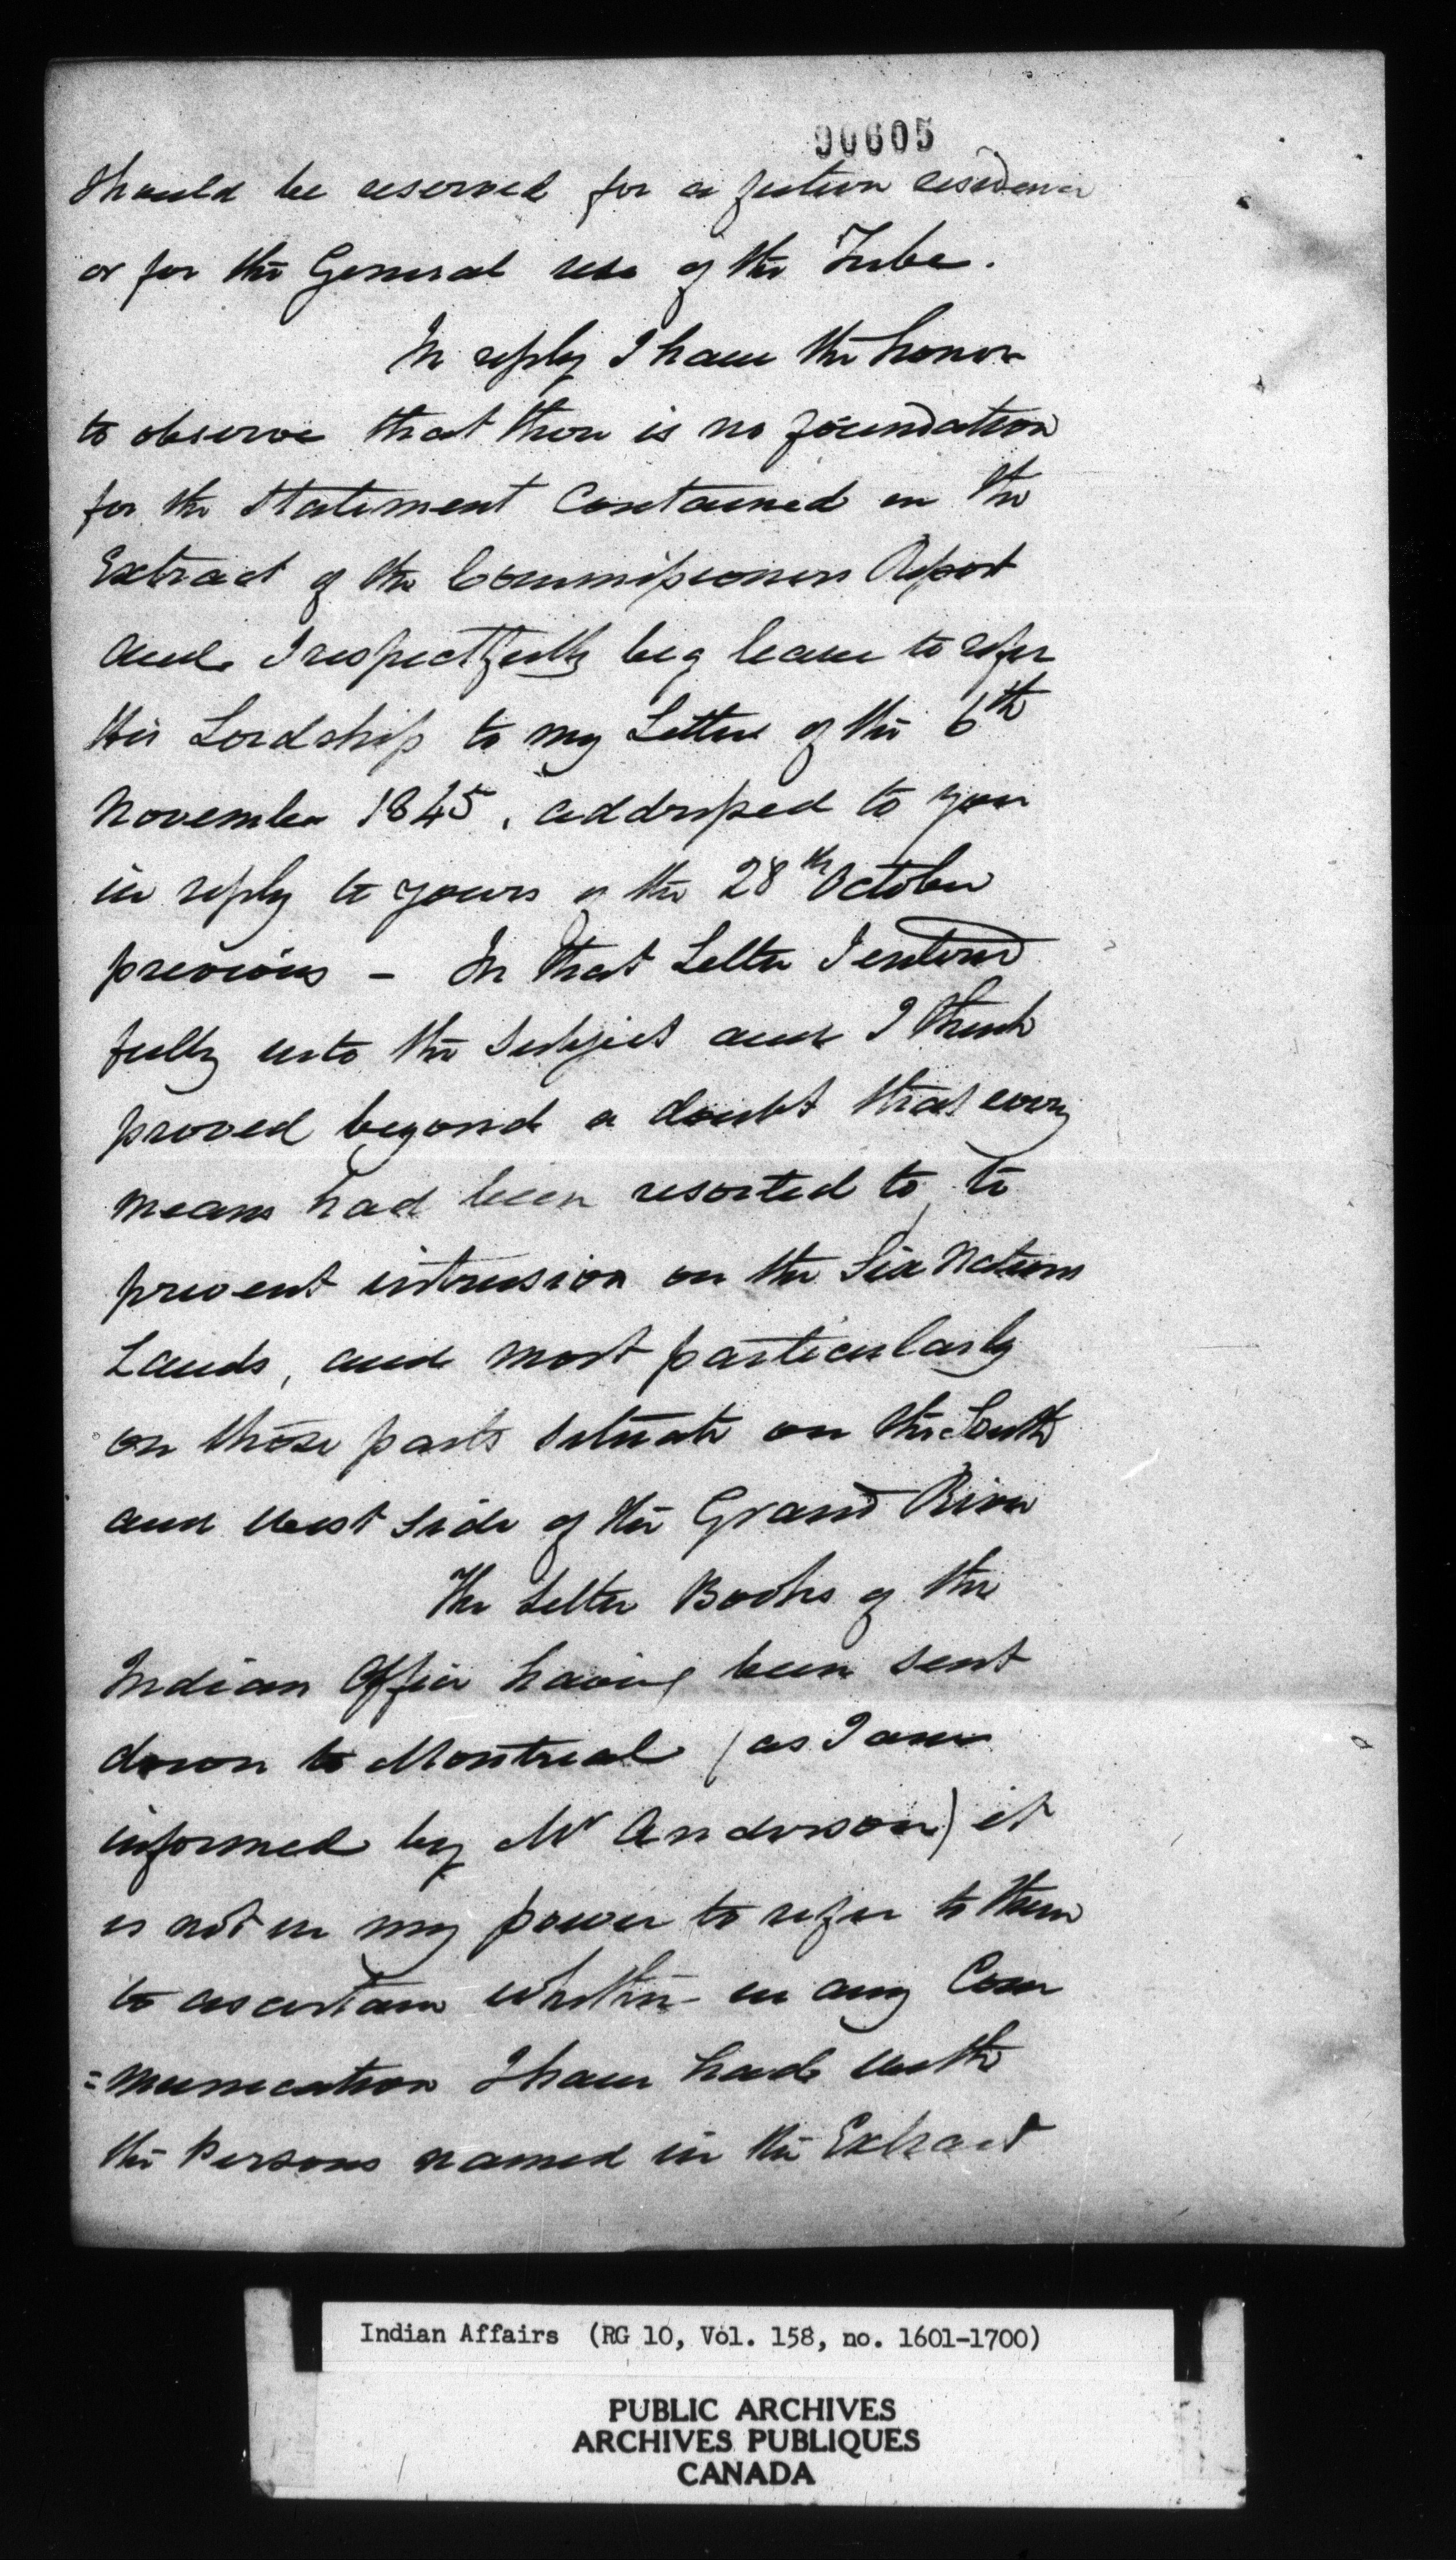 90605
should be reserved for a future residence
or for the General use of the Tribe.
In reply I have the honor
to observe that there is no foundation
for the Statement Contained in the
Extract of the Commissioners Report
and I respectfully beg leave to refer
His Lordship to my Letter of the 6th
November 1845, addressed to you
in reply to yours of the 28th October
previous - In that Letter I entered
fully into the subject and I think
proved beyond a doubt that every
means had been resorted to, to
prevent intrusion on the Six Nations
Lands, and most particularly
on those parts situate on the South
and West side of the Grand River
The Letter Books of the
Indian Office having been sent
down to Montreal (as I am
informed by Mr Anderson) it
is not in my power to refer to them
to ascertain whether in any Com
=munication I have had with
the Persons named in the Extract
Indian Affairs (RG 10, Vol. 158, no. 1601-1700)
PUBLIC ARCHIVES
ARCHIVES PUBLIQUES
CANADA